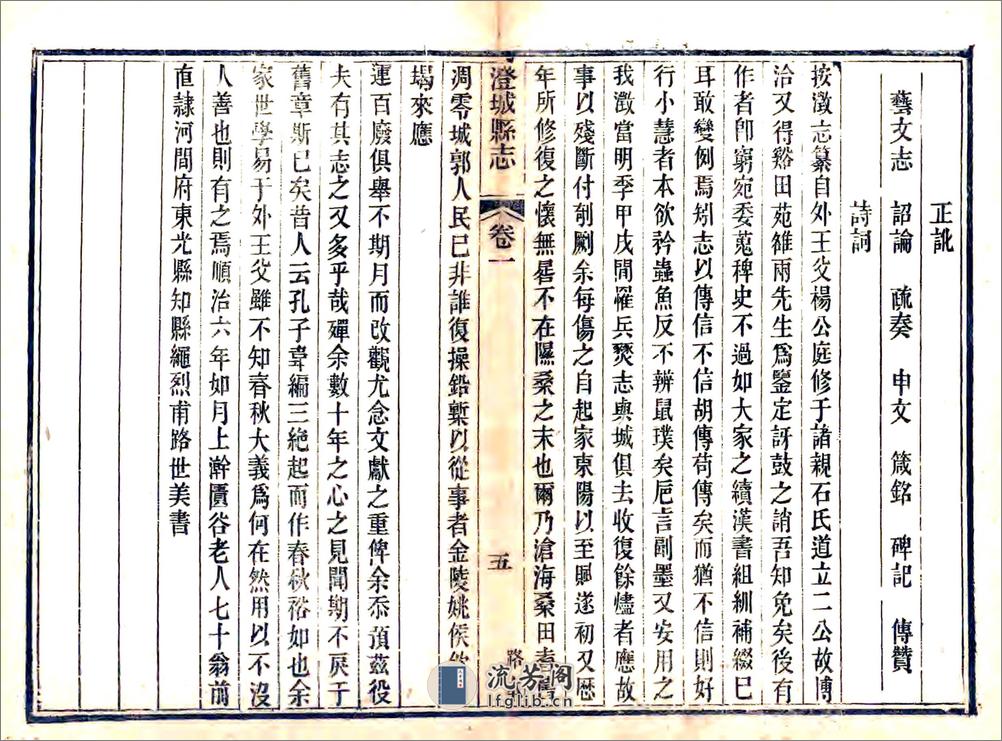 正訛
藝文志　詔論　疏奏　申文　箴銘　碑記　傳贊
詩詞
按澂志纂自外王父楊公庭修于諸親石氏道立二公故博
洽又得谿田苑雒兩先生爲鑒定訝鼓之誚吾知免矣後有
作者卽窮宛委蒐稗史不過如大家之續漢書組紃補綴已
耳敢變例焉矧志以傳信不信胡傳苟傳矣而猶不信則好
行小慧者本欲矜蟲魚反不辨鼠璞矣巵言副墨又安用之
我澂當明季甲戌間罹兵燹志與城俱去收復餘燼者應故
事以殘斷付剞劂余每傷之自起家東陽以至賦遂初又歷
年所修復之懷無晷不在隰桑之末也爾乃滄海桑田耆舊
凋零城郭人民已非誰復操鉛槧以從事者金陵姚侯
朅來應
運百廢俱舉不期月而改觀尤念文獻之重俾余忝預茲役
夫有其志之又多乎哉殫余數十年之心之見聞期不戾于
舊章斯已矣昔人云孔子韋編三絕起而作春秋裕如也余
家世學易于外王父雖不知春秋大義爲何在然用以不沒
人善也則有之焉順治六年如月上澣匱谷老人七十翁前
直隸河間府東光縣知縣繩烈甫路世美書
澄城縣志
卷一
五
路
流芳閣
lfglib.cn